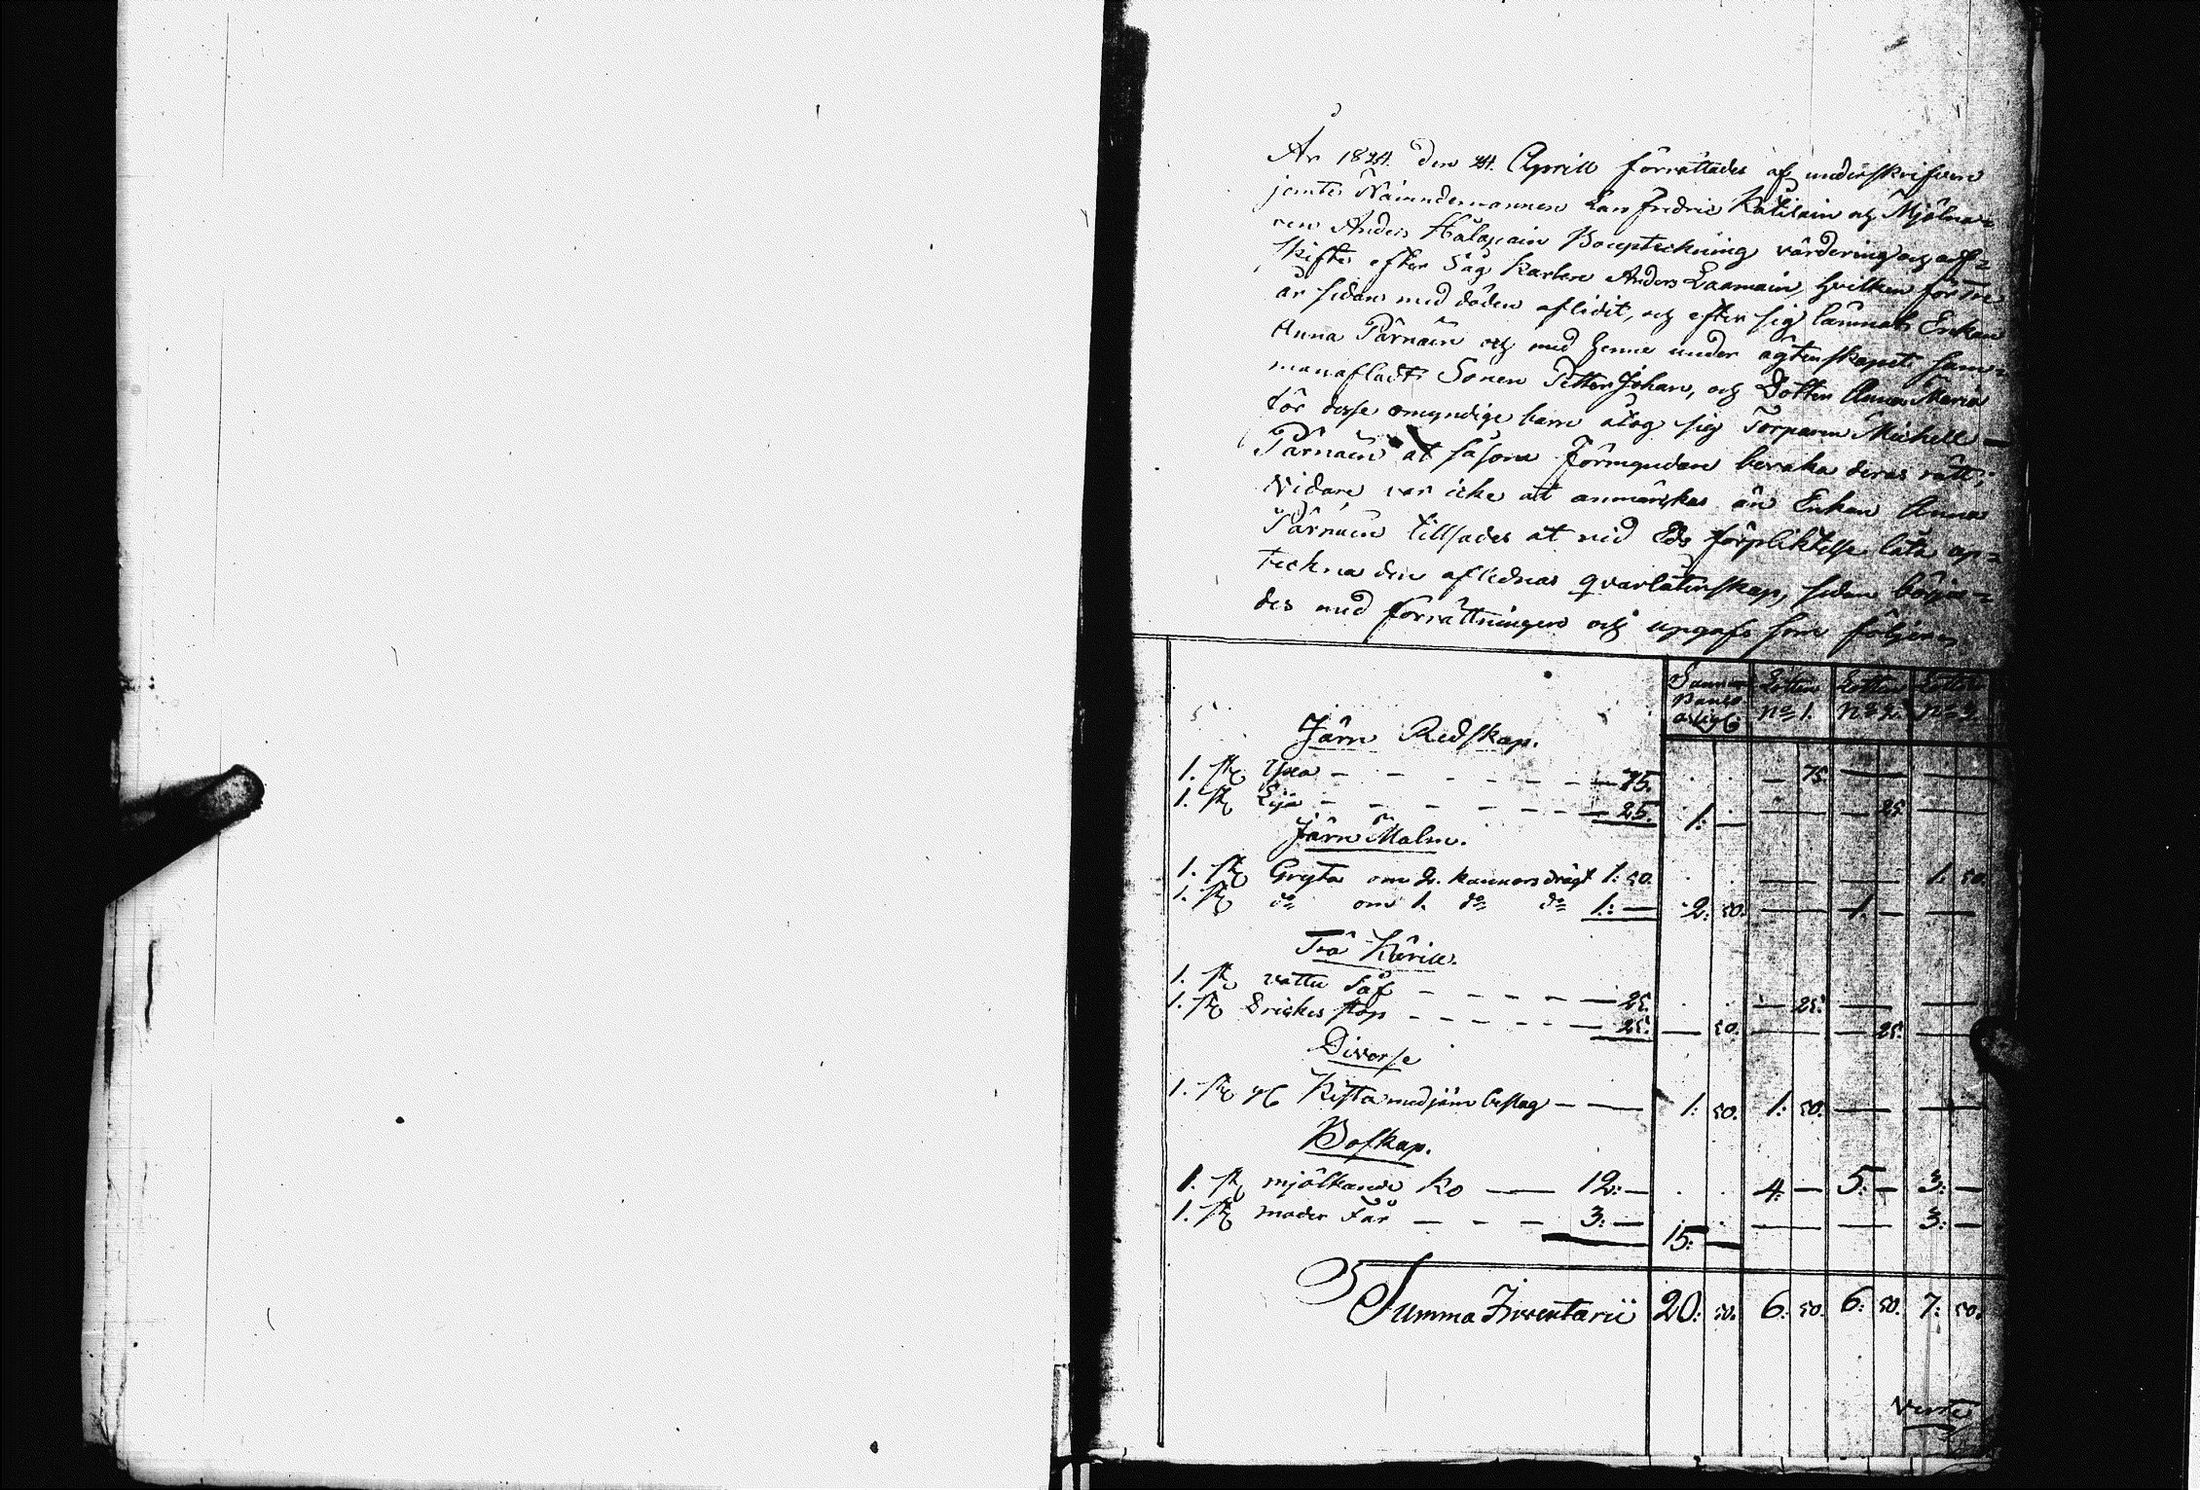 År 1824. den 24. Aprill förrättades af underskrifven
jemte Nämndemannen Lars Fredric Kätilain och Mjölna=
ren Anders Halapain Boupteckning värdering och arf=
skifte efter Såg Karlen Anders Laamain, hvilken för Tre
år sedan med döden aflidit, och efter sig lämnat Enkan
Anna Pärnäin och med henne under ägtenskapet sam=
manaflade Sonen Petter Johan, och Dottern Anna Maria
för desse omyndige barn åtog sig Torparen Michell
Pärnäin at såsom Förmyndare bevaka deras rätt;
Vidare var icke at anmärkas än Enkan Anna
Pärnäin tillsades at vid Eds förpliktelse låta up=
teckna den aflednas qvarlåtenskap, sedan börja=
des med förrättningen och upgafs som följer
Lotten No 1. Lotten No 2. Lotten No 3.
Järn Redskap.
1. st Yxa — 75. — 75.
1. st Lija — 25. 1: — 25.
Järn Malm.
1. st Gryta om 2. kannors drägt 1: 50. 1: 50.
1. st do om 1. do do 1: — 2: 50. 1. —
Trä Käril.
1. st vattu Såf — 25. — 25.
1. st Drickes stop — 25. — 50. — 25.
Diverse
1. st Kista med järn beslag — 1: 50. 1: 50.
Boskap.
1. st mjölkande Ko — 12: — 4: — 5: — 3: —
1. st moder Får — 3: — 15: — 3: —
Summa Inventarii 20: 50. 6: 50. 6: 50. 7: 50.
Verte